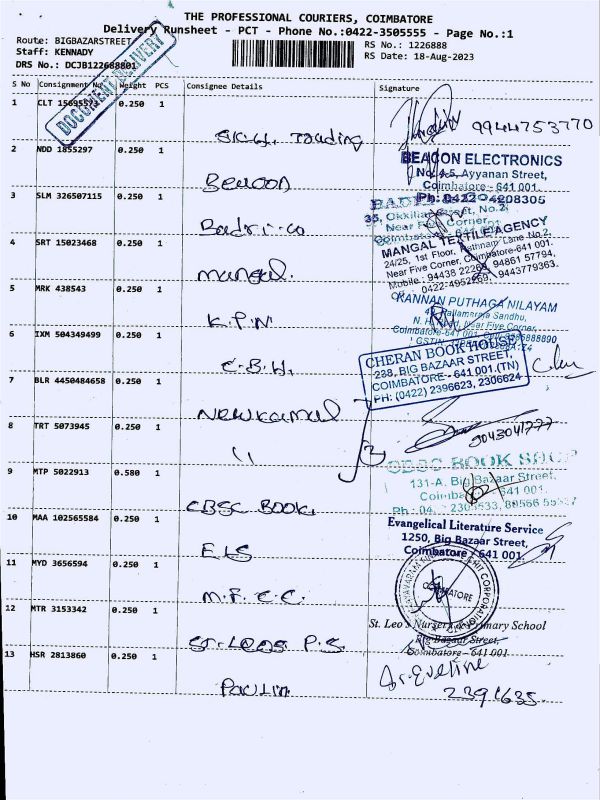 THE PROFESSIONAL COURIERS, COIMBATORE
Delivery Runsheet - PCT - Phone No.:0422-3505555 - Page No.:1
Route: BIGBAZARSTREET
Staff: KENNADY
DRS No.: DCJB122688801
RS No.: 1226888
RS Date: 18-Aug-2023
DOCUMENT DELIVERY
S No Consignment No Weight PCS Consignee Details Signature
1 CLT 15695573 0.250 1
Trading
9944753770
2 NDD 1855297 0.250 1
Beacon
BEACON ELECTRONICS
No. 4-5, Ayyanan Street,
Coimbatore - 641 001.
Ph: 0422 - 4208305
3 SLM 326507115 0.250 1
Badri-co
35, Okkiliar Street, No.2,
Near Five Corner,
Coimbatore - 641 001
4 SRT 15023468 0.250 1
mangal.
MANGAL TEXTILE AGENCY
24/25, 1st Floor, Asthnam Lane No.2,
Near Five Corner, Coimbatore-641 001.
Mobile : 94438 22269, 94861 57794,
Off : 0422-4952269, 9443779363.
5 MRK 438543 0.250 1
K.P.N
KANNAN PUTHAGA NILAYAM
Near Five Corner,
Coimbatore-641 001
6 IXM 504349499 0.250 1
C.B.H.
CHERAN BOOK HOUSE
238, BIG BAZAAR STREET,
COIMBATORE - 641 001.(TN)
PH: (0422) 2396623, 2306624
7 BLR 4450484658 0.250 1
New Kamal
8 TRT 5073945 0.250 1
11
9043041777
9 MTP 5022913 0.580 1
CBSC BOOK.
CBSC BOOK SHOP
131-A, Big Bazaar Street,
Coimbatore - 641 001.
10 MAA 102565584 0.250 1
ELS
Evangelical Literature Service
1250, Big Bazaar Street,
Coimbatore - 641 001.
11 MYD 3656594 0.250 1
M.F.C.C.
COIMBATORE
12 MTR 3153342 0.250 1
St. Leos P.S.
St. Leo's Nursery & Primary School
Big Bazaar Street,
Coimbatore - 641 001
13 HSR 2813860 0.250 1
Paulin
Sr. Eveline
2391635.